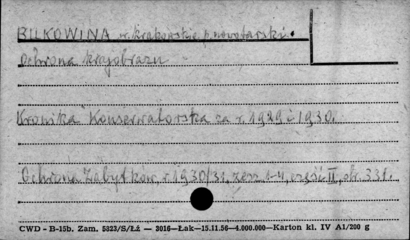 BUKOWINA w. krakowskie p. nowotarski.
ochrona krajobrazu -
Kronika Konserwatorska za r. 1929 i 1930.
Ochrona Zabytków, r. 1930/31, zesz. 1-4, część II, str. 331.
CWD - B-15b. Zam. 5323/S/Łź — 3016—Łak—15.11.56—4.000.000—Karton kl. IV A1/200 g